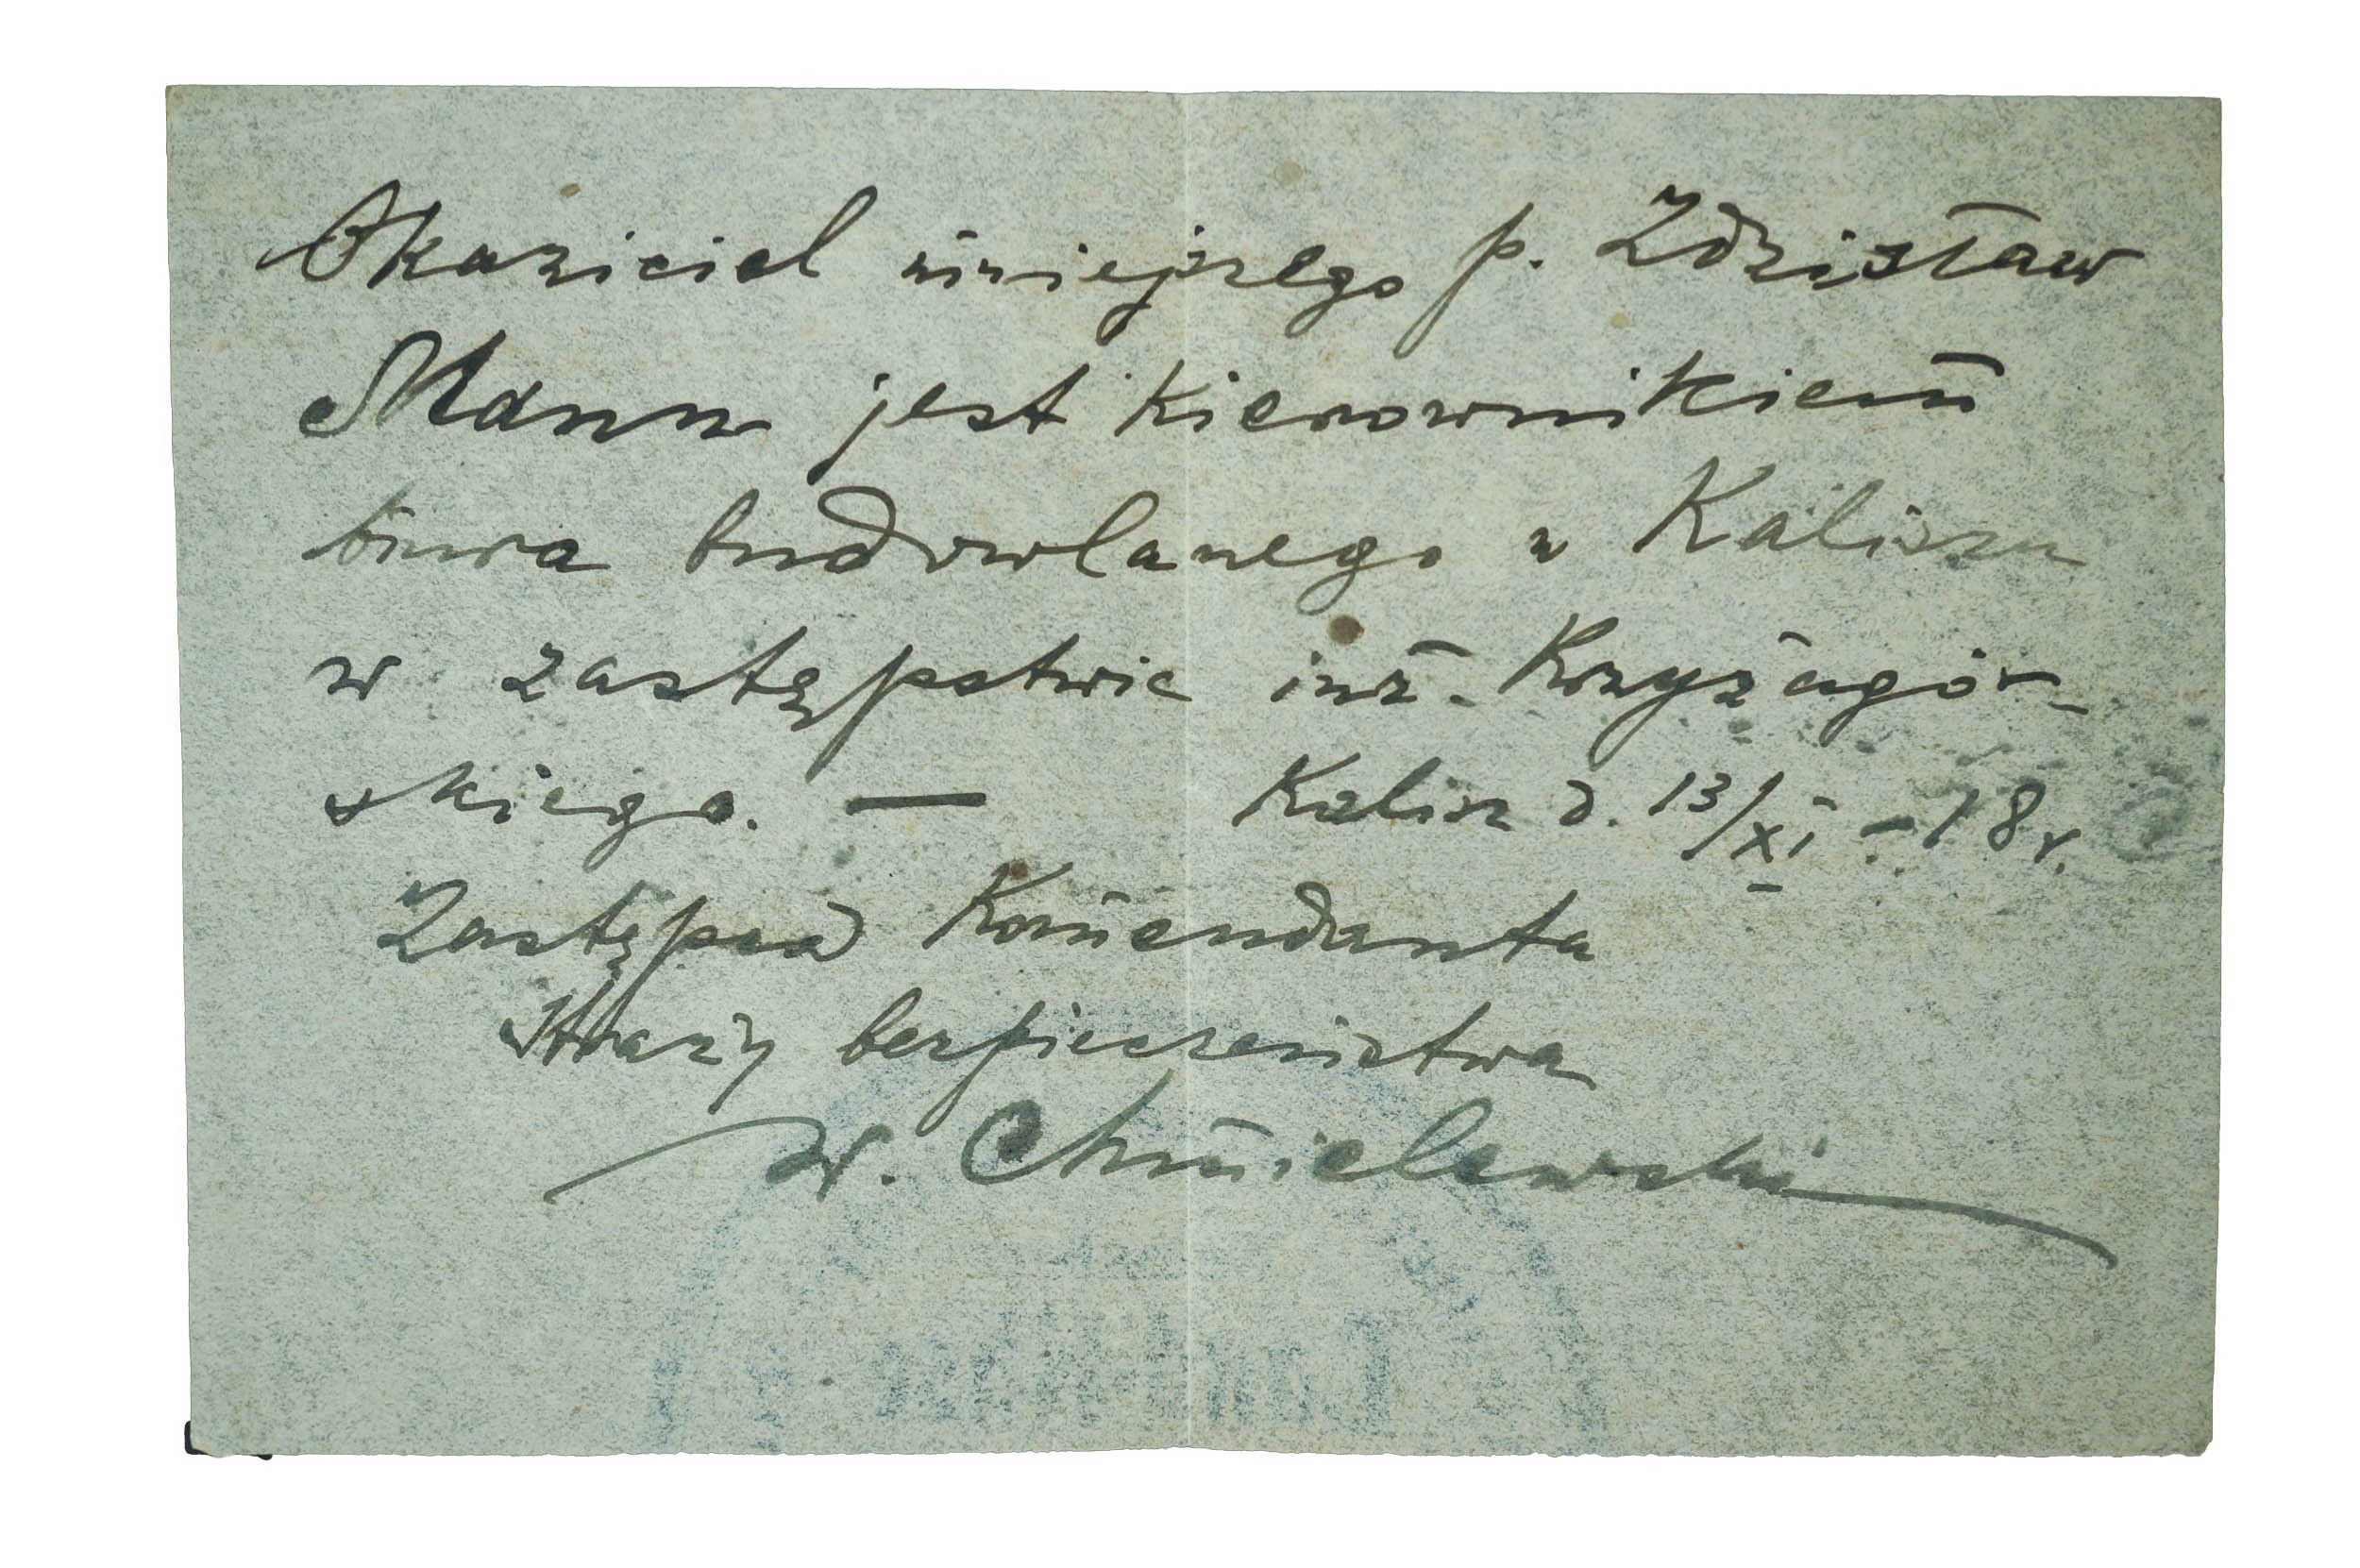 Okaziciel niniejszego p. Zdzisław
Mann jest kierownikiem
biura budowlanego w Kaliszu
w zastępstwie inż. Krzyżagór-
skiego. — Kalisz d. 13/XI - 18 r.
Zastępca Komendanta
Straży bezpieczeństwa
W. Chmielewski